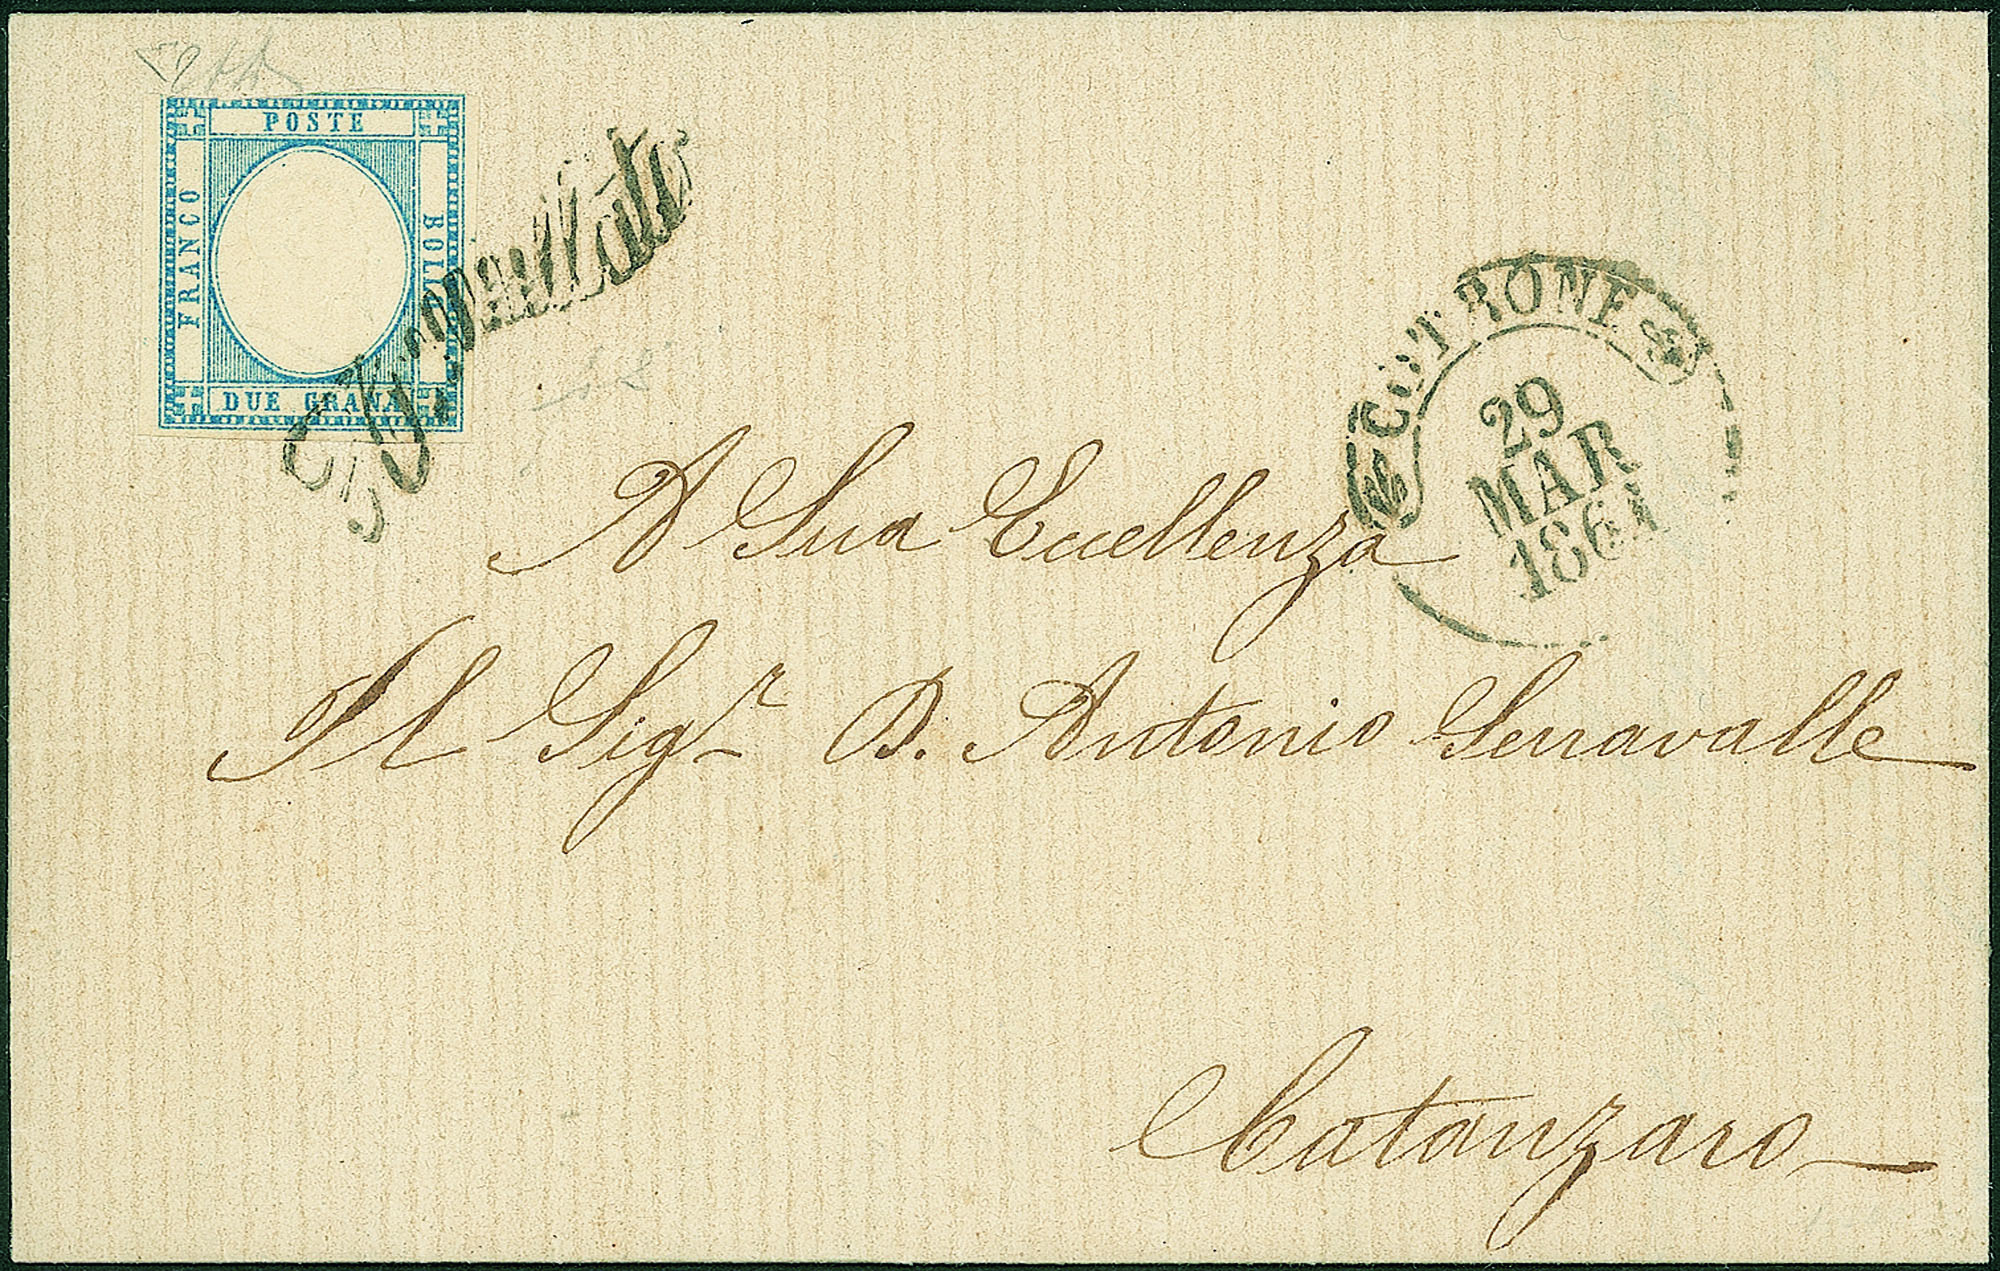 POSTE
FRANCO
BOLLO
DUE GRANA
COTRONE
29
MAR
1861
A Sua Eccellenza
Il Sigr. D. Antonio Serravalle
Catanzaro